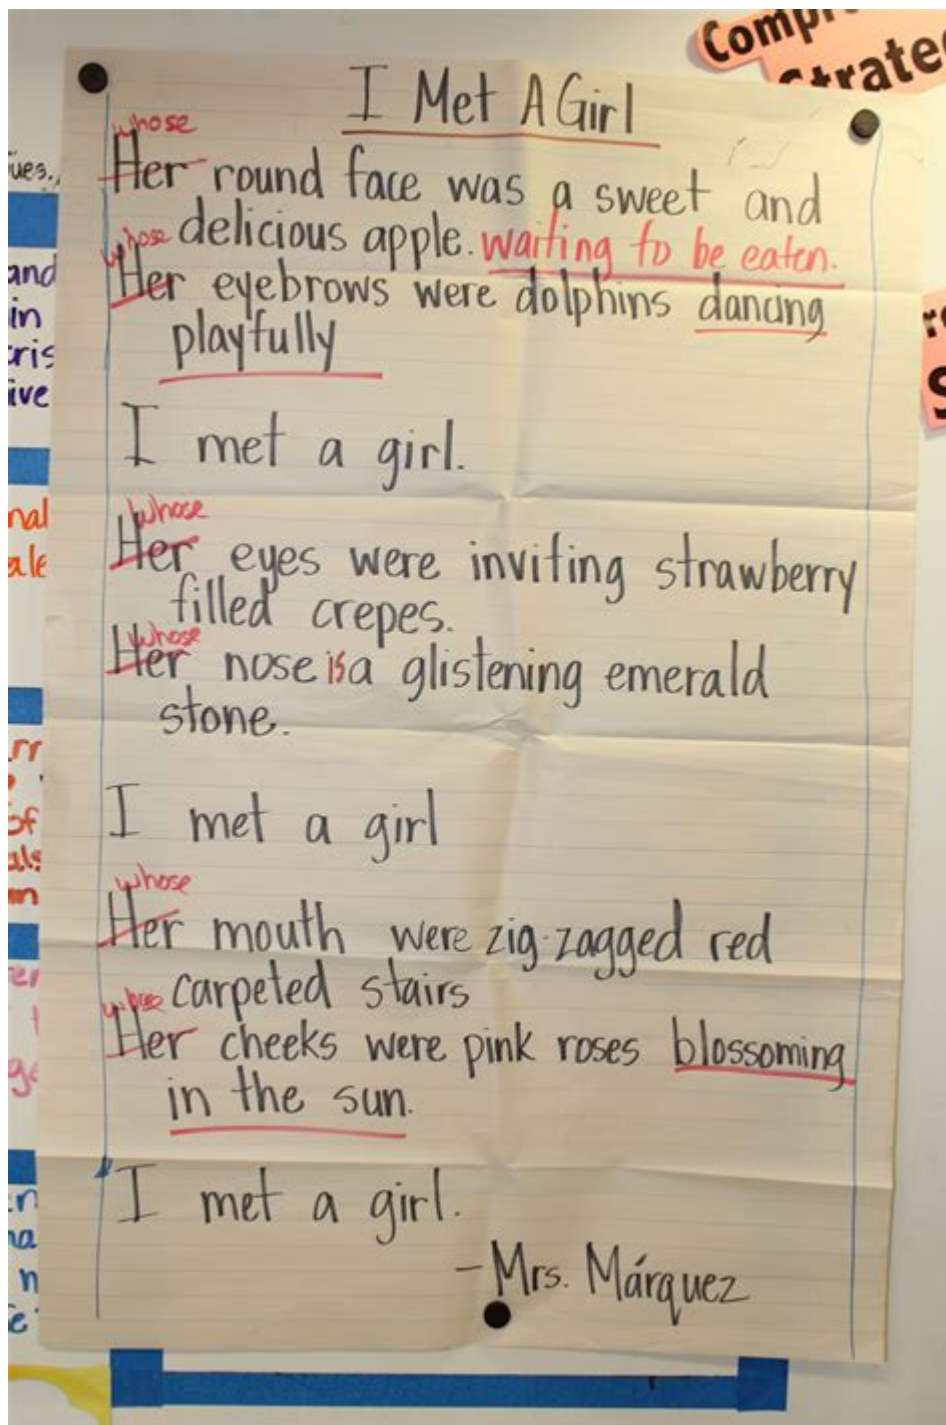 Compr
Strate
I Met A Girl
whose
Her round face was a sweet and
delicious apple. waiting to be eaten.
whose
Her eyebrows were dolphins dancing
playfully
I met a girl.
whose
Her eyes were inviting strawberry
filled crepes.
whose
Her nose is a glistening emerald
stone.
I met a girl
whose
Her mouth were zig-zagged red
carpeted stairs
whose
Her cheeks were pink roses blossoming
in the sun.
I met a girl.
-Mrs. Márquez
ues.,
and
in
cris
ive
nal
ale
of
als